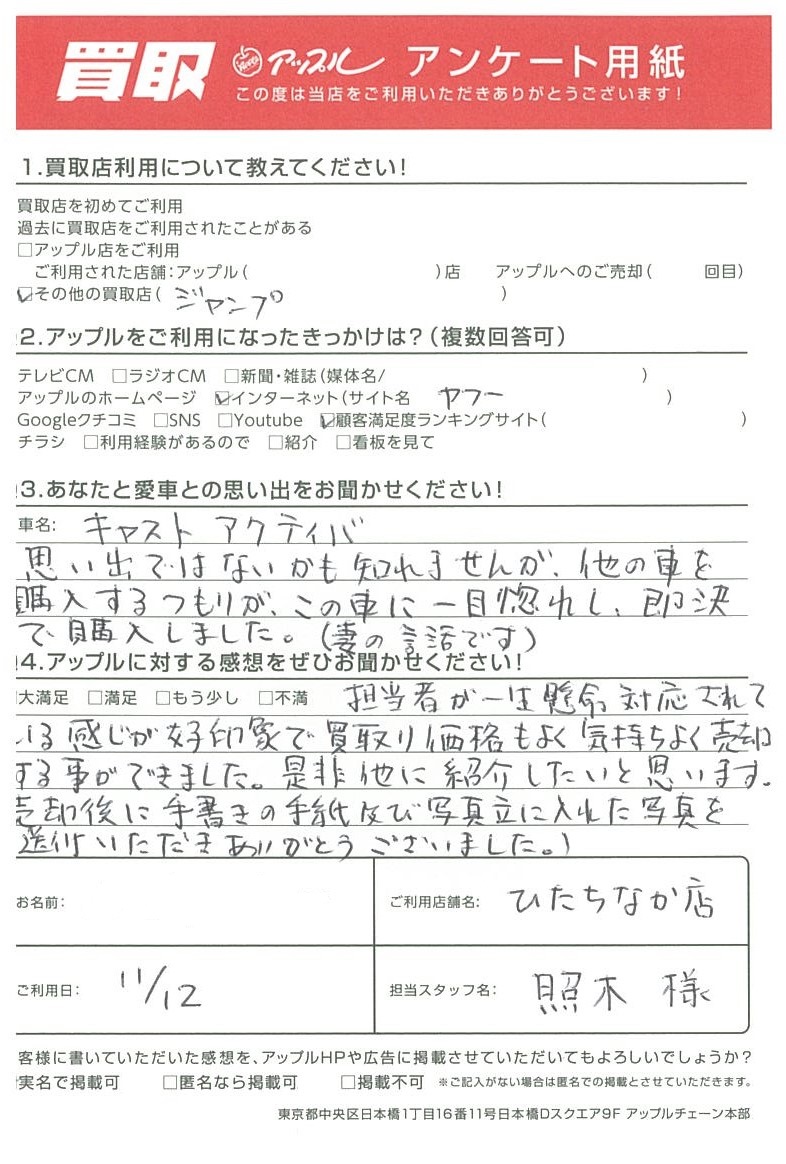 買取 アップル アンケート用紙
この度は当店をご利用いただきありがとうございます!
1.買取店利用について教えてください!
買取店を初めてご利用
過去に買取店をご利用されたことがある
□アップル店をご利用
ご利用された店舗:アップル( )店 アップルへのご売却( 回目)
☑その他の買取店( ジャンプ )
2.アップルをご利用になったきっかけは?(複数回答可)
テレビCM □ラジオCM □新聞・雑誌(媒体名/ )
アップルのホームページ ☑インターネット(サイト名 ヤフー )
Googleクチコミ □SNS □Youtube ☑顧客満足度ランキングサイト( )
チラシ □利用経験があるので □紹介 □看板を見て
3.あなたと愛車との思い出をお聞かせください!
車名: キャスト アクティバ
思い出ではないかも知れませんが、他の車を
購入するつもりが、この車に一目惚れし、即決
で購入しました。(妻の言話です)
4.アップルに対する感想をぜひお聞かせください!
大満足 □満足 □もう少し □不満 担当者が一生懸命対応されて
いる感じが好印象で買取り価格もよく気持ちよく売却
する事ができました。是非他に紹介したいと思います。
売却後に手書きの手紙及び写真立に入れた写真を
送付いただきありがとうございました。)
お名前: ご利用店舗名: ひたちなか店
ご利用日: 11/12 担当スタッフ名: 照木 様
客様に書いていただいた感想を、アップルHPや広告に掲載させていただいてもよろしいでしょうか?
実名で掲載可 □匿名なら掲載可 □掲載不可 ※ご記入がない場合は匿名での掲載とさせていただきます。
東京都中央区日本橋1丁目16番11号日本橋Dスクエア9F アップルチェーン本部